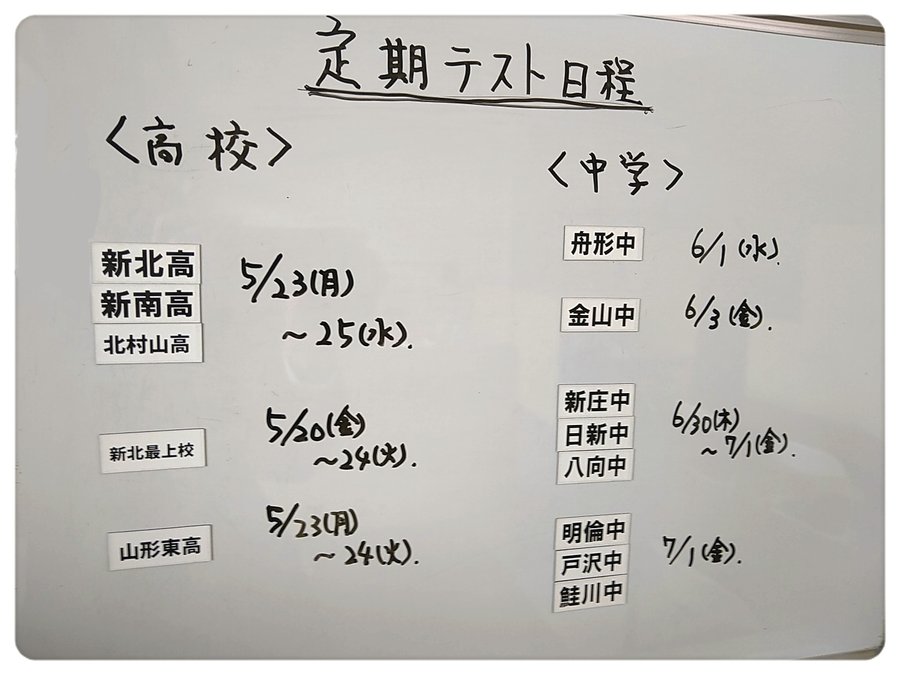 定期テスト日程
〈高校〉
新北高
新南高
北村山高
5/23(月)
〜25(水).
新北最上校
5/20(金)
〜24(火).
山形東高
5/23(月)
〜24(火).
〈中学〉
舟形中
6/1(水).
金山中
6/3(金).
新庄中
日新中
八向中
6/30(木)
〜7/1(金).
明倫中
戸沢中
鮭川中
7/1(金).